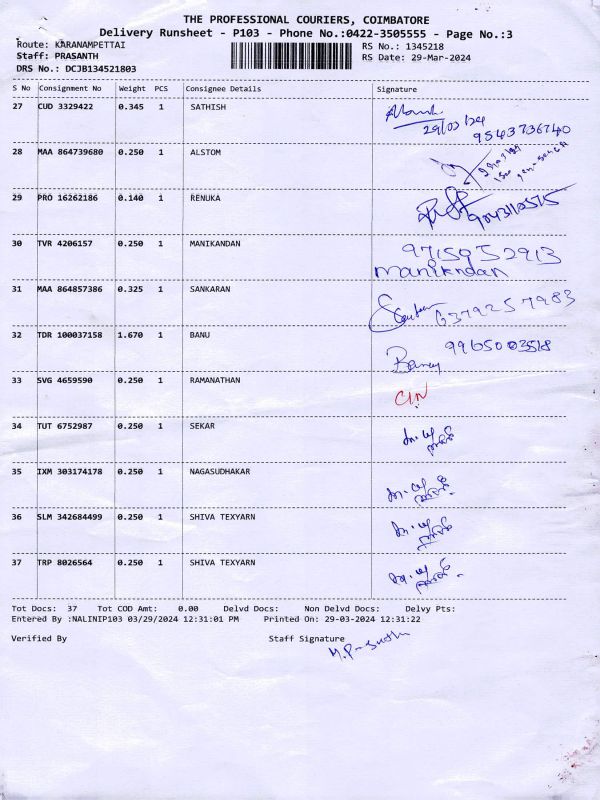 THE PROFESSIONAL COURIERS, COIMBATORE
Delivery Runsheet - P103 - Phone No.:0422-3505555 - Page No.:3
Route: KARANAMPETTAI
RS No.: 1345218
Staff: PRASANTH
RS Date: 29-Mar-2024
DRS No.: DCJB134521803
S No Consignment No Weight PCS Consignee Details Signature
27 CUD 3329422 0.345 1 SATHISH
29/03/24
9543736740
28 MAA 864739680 0.250 1 ALSTOM
29 PRO 16262186 0.140 1 RENUKA
30 TVR 4206157 0.250 1 MANIKANDAN 9715952913
manikndan
31 MAA 864857386 0.325 1 SANKARAN 6379257983
32 TDR 100037158 1.670 1 BANU 9965003518
33 SVG 4659590 0.250 1 RAMANATHAN
34 TUT 6752987 0.250 1 SEKAR
35 IXM 303174178 0.250 1 NAGASUDHAKAR
36 SLM 342684499 0.250 1 SHIVA TEXYARN
37 TRP 8026564 0.250 1 SHIVA TEXYARN
Tot Docs: 37 Tot COD Amt: 0.00 Delvd Docs: Non Delvd Docs: Delvy Pts:
Entered By :NALINIP103 03/29/2024 12:31:01 PM Printed On: 29-03-2024 12:31:22
Verified By Staff Signature